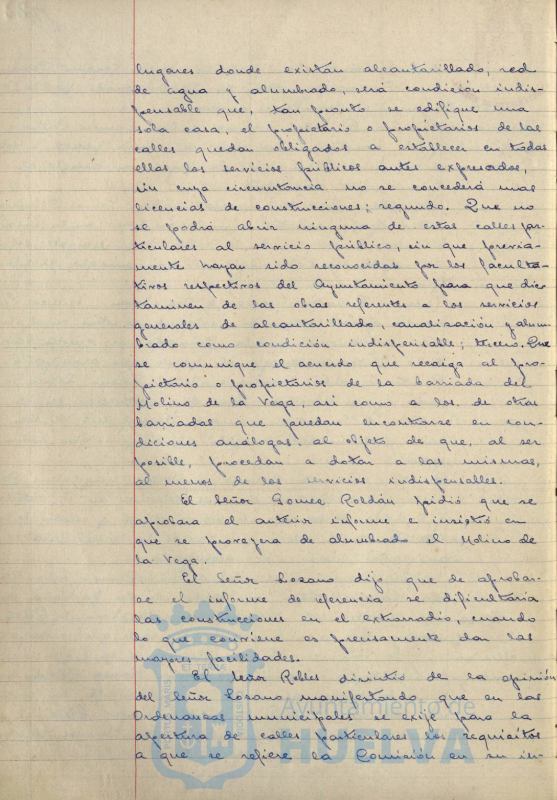 lugares donde existan alcantarillado, red
de agua y alumbrado, será condición indis-
pensable que, tan pronto se edifique una
sola casa, el propietario o propietarios de las
calles quedan obligados a establecer en todas
ellas los servicios públicos antes expresados,
sin cuya circunstancia no se concederá mas
licencias de construcciones; segundo. Que no
se podrá abrir ninguna de estas calles par-
ticulares al servicio público, sin que previa-
mente hayan sido reconocidas por los faculta-
tivos respectivos del Ayuntamiento para que dic-
taminen de las obras referentes a los servicios
generales de alcantarillado, canalización y alum-
brado como condición indispensable; tercero. Que
se comunique el acuerdo que recaiga al pro-
pietario o propietarios de la barriada del
Molino de la Vega, asi como a los de otras
barriadas que puedan encontrarse en con-
diciones análogas. al objeto de que, al ser
posible, procedan a dotar a las mismas,
al menos de los servicios indispensables.
El Señor Gomez Roldán pidió que se
aprobara el anterior informe e insistió en
que se proveyera de alumbrado el Molino de
la Vega.
El Señor Lozano dijo que de aprobar-
se el informe de referencia se dificultaria
las construcciones en el extrarradio, cuando
lo que conviene es precisamente dar las
mayores facilidades.
El Señor Robles disintió de la opinión
del Señor Lozano manifestando que en las
Ordenanzas municipales se exije para la
apertura de calles particulares los requisitos
a que se refiere la Comisión en su in-
Ayuntamiento de
HUELVA